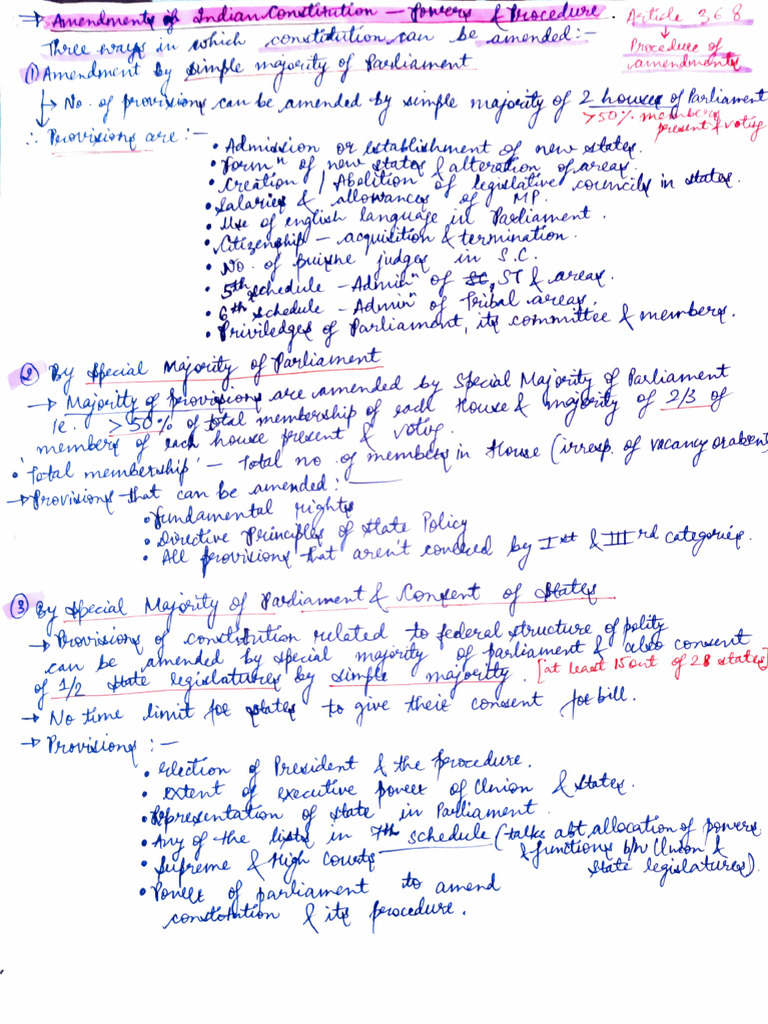 → Amendments of Indian Constitution – Powers & Procedure. Article 368
↓
Procedure of amendments
Three ways in which constitution can be amended:-
① Amendment by simple majority of Parliament
↳ No. of provisions can be amended by simple majority of 2 houses of Parliament
>50% members present & voting
∴ Provisions are:-
• Admission or establishment of new states.
• Formⁿ of new states & alteration of areas.
• Creation / Abolition of legislative councils in states.
• Salaries & allowances of MP.
• Use of english language in Parliament.
• Citizenship – acquisition & termination.
• No. of puisne judges in S.C.
• 5th schedule – Adminⁿ of SC, ST & areas.
• 6th schedule – Adminⁿ of Tribal areas.
• Priviledges of Parliament, its committee & members.
② By Special Majority of Parliament
→ Majority of provisions are amended by Special Majority of Parliament
ie. >50% of total membership of each House & majority of 2/3 of
members of each house present & voting.
• 'Total membership' – Total no. of members in House (irresp. of vacancy or absent)
→ Provisions that can be amended:
• Fundamental rights
• Directive Principles of State Policy
• All provisions that aren't covered by Ist & IIIrd categories.
③ By Special Majority of Parliament & Consent of States
→ Provisions of constitution related to federal structure of polity
can be amended by special majority of parliament & also consent
of 1/2 state legislatures by simple majority. [at least 15 out of 28 states]
→ No time limit for states to give their consent for bill.
→ Provisions:-
• election of President & the procedure.
• extent of executive power of Union & states.
• Representation of state in Parliament.
• Any of the lists in 7th schedule (talks abt allocation of powers
& functions b/w Union &
State legislatures).
• Supreme & High Courts
• Power of parliament to amend
constitution & its procedure.